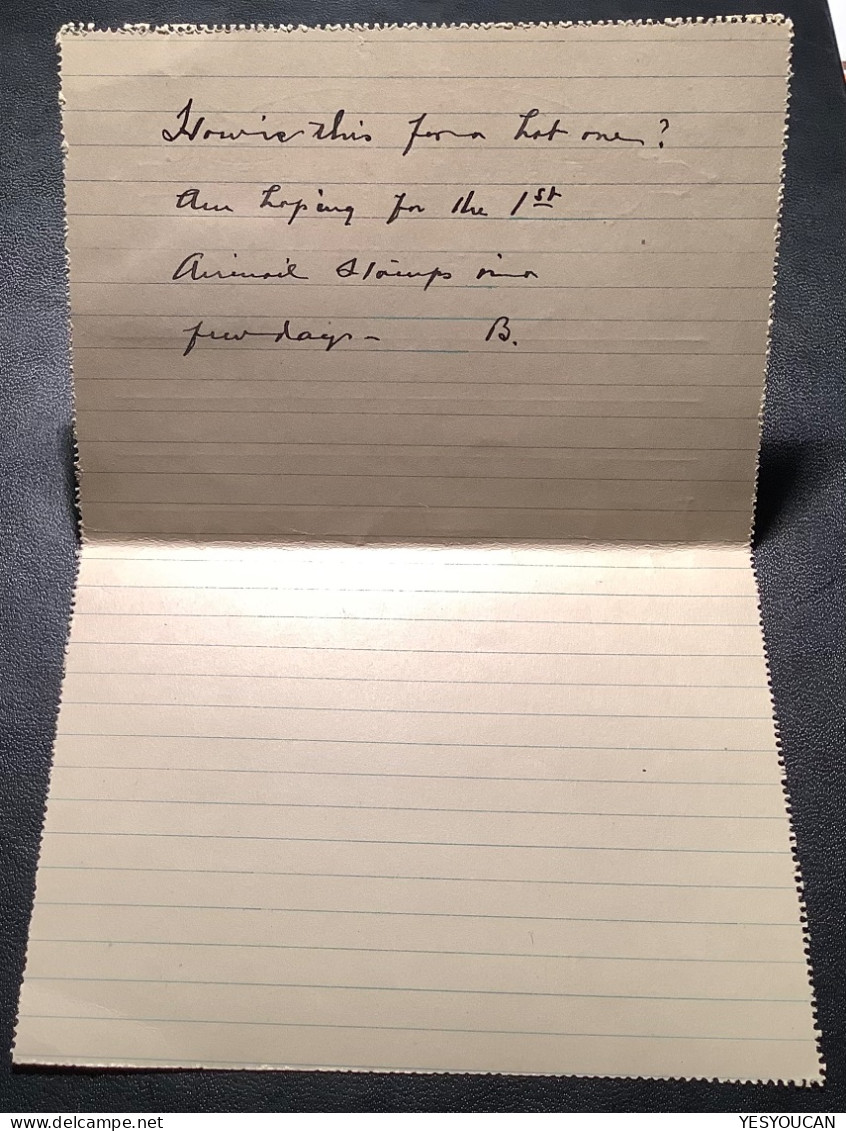 How is this for a hot one?
Am hoping for the 1st
Airmail stamps in a
few days - B.
YESYOUCAN